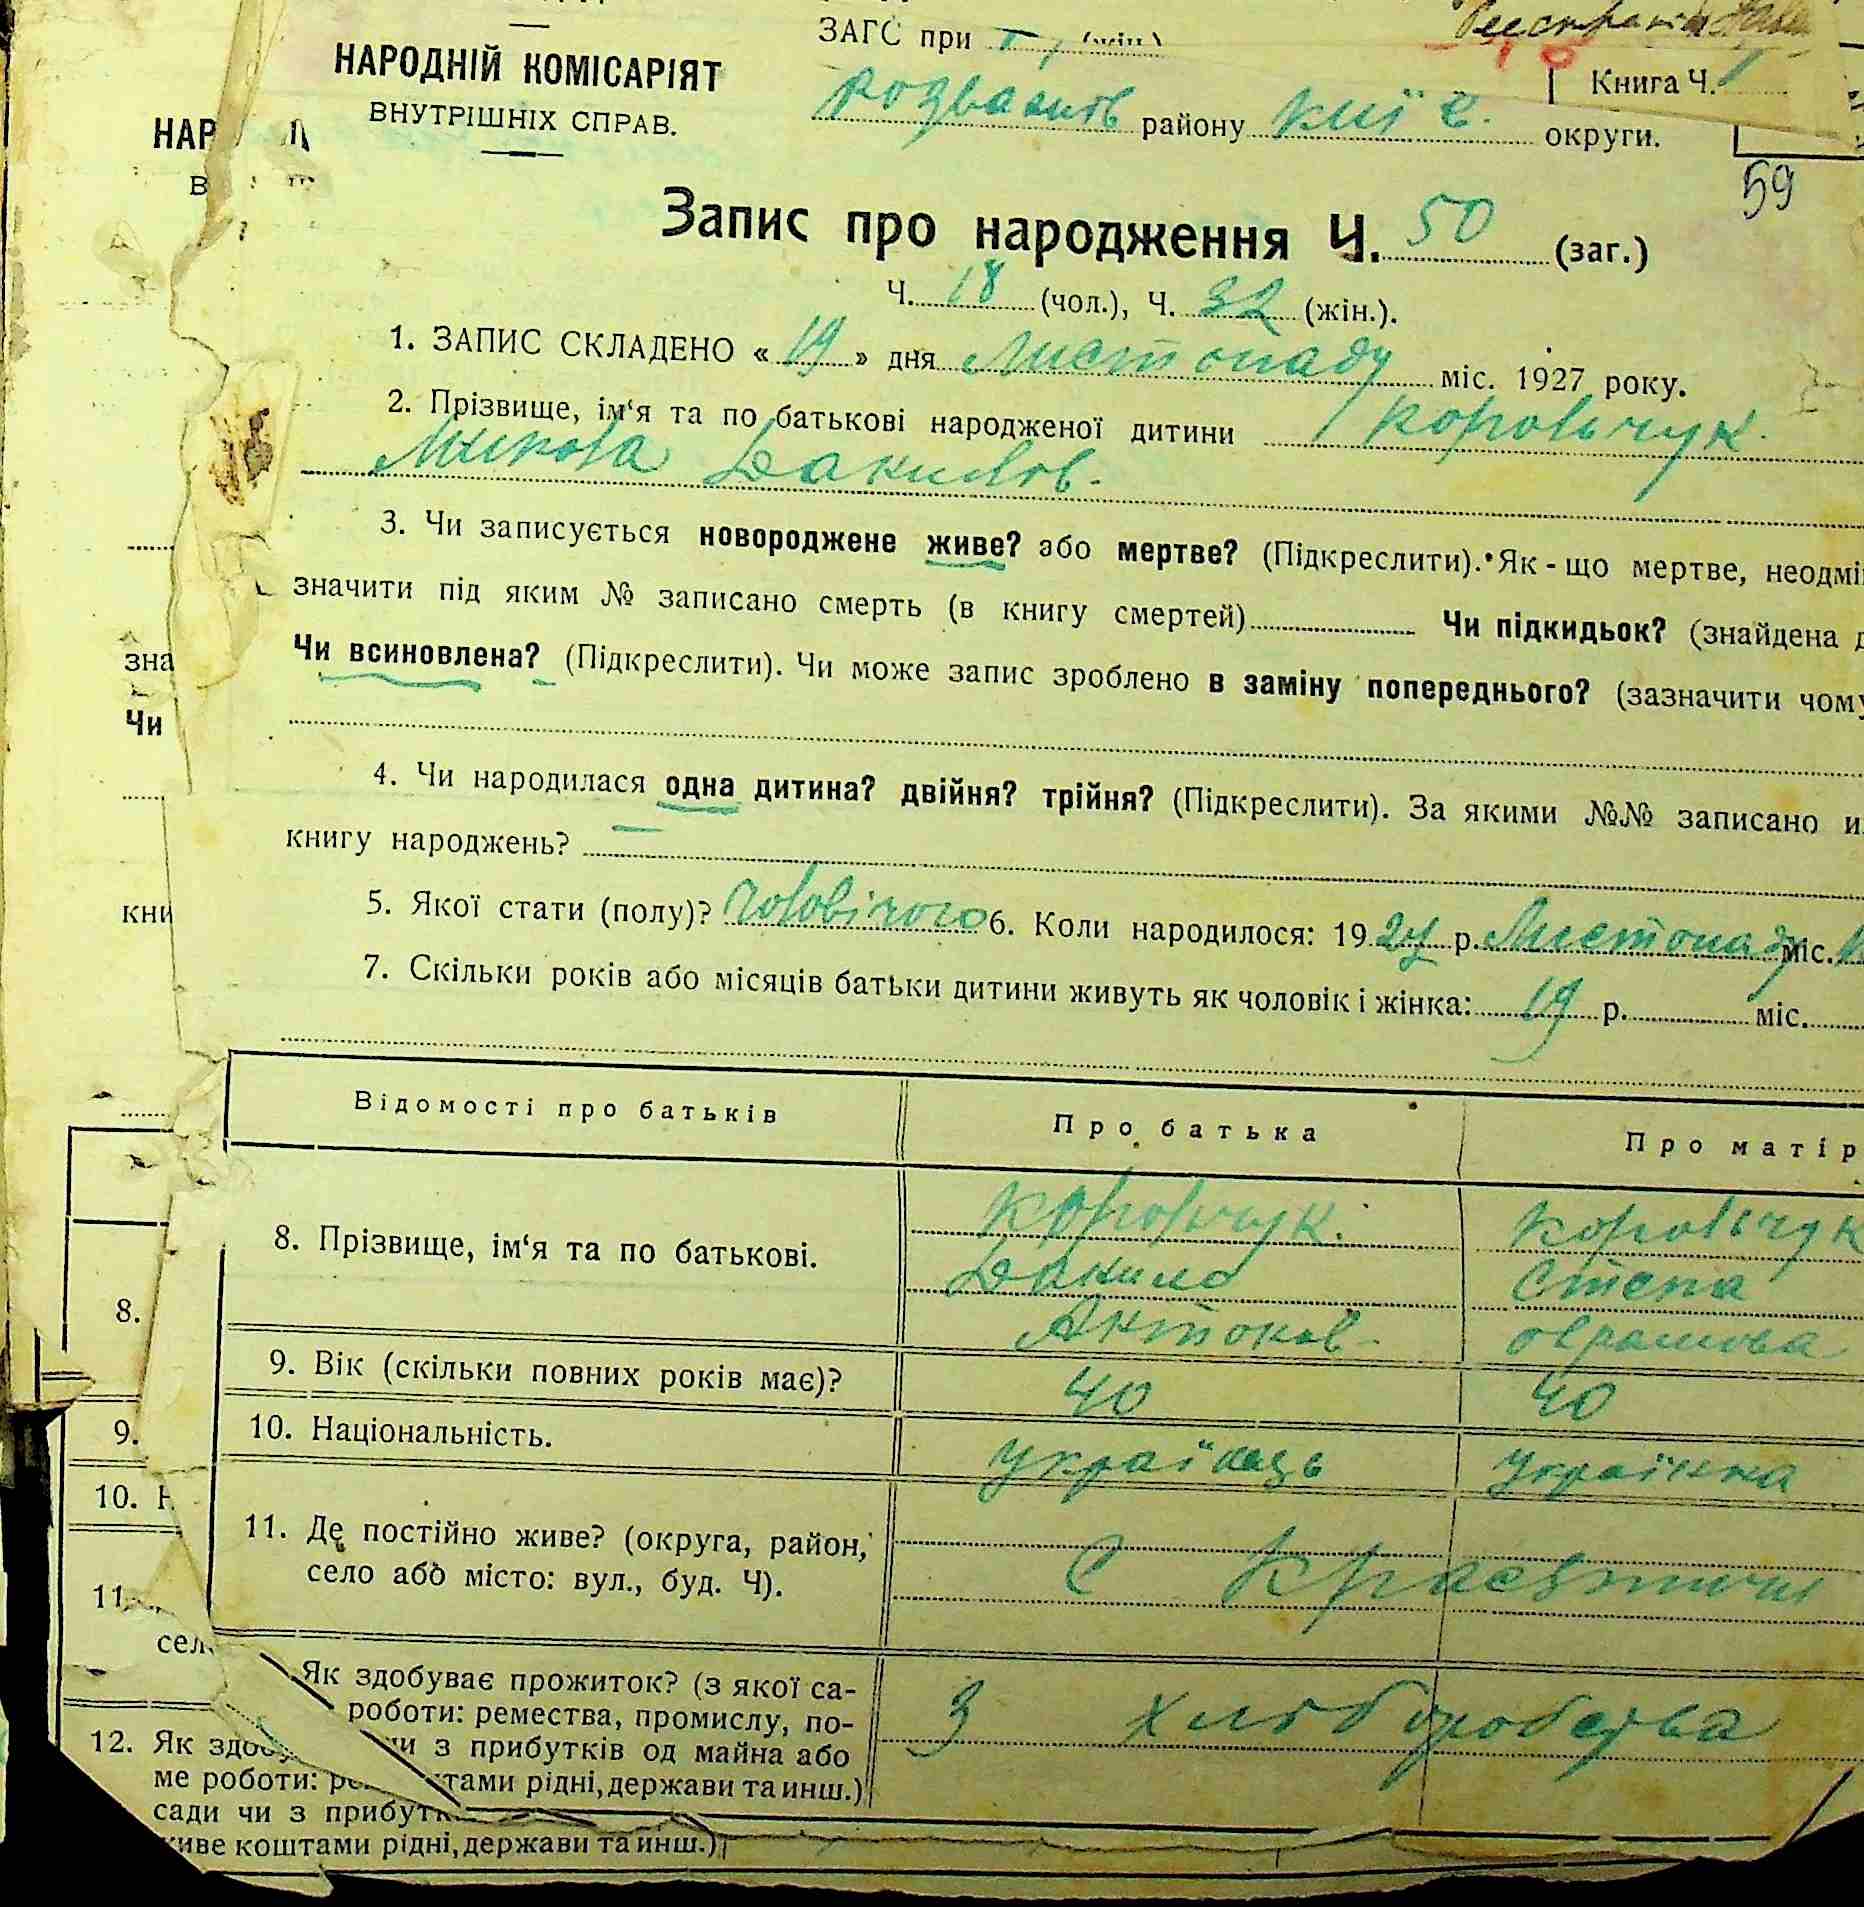 ЗАГС при
НАРОДНІЙ КОМІСАРІЯТ
ВНУТРІШНІХ СПРАВ.
Книга Ч.
Розважів району Київ. округи.
НАР
В
59
Запис про народження Ч. 50 (заг.)
Ч. 18 (чол.), Ч. 32 (жін.).
1. ЗАПИС СКЛАДЕНО « 19 » дня Листопаду міс. 1927 року.
2. Прізвище, ім‘я та по батькові народженої дитини Корольчук
Микола Данилов.
3. Чи записується новороджене живе? або мертве? (Підкреслити). Як-що мертве, неодмі
значити під яким № записано смерть (в книгу смертей) Чи підкидьок? (знайдена д
Чи всиновлена? (Підкреслити). Чи може запис зроблено в заміну попереднього? (зазначити чому
зна
Чи
4. Чи народилася одна дитина? двійня? трійня? (Підкреслити). За якими №№ записано и
книгу народжень?
кни
5. Якої стати (полу)? Чоловічого 6. Коли народилося: 1927 р. Листопаду міс.
7. Скільки років або місяців батьки дитини живуть як чоловік і жінка: 19 р. міс.
Відомості про батьків Про батька Про матір
8. Прізвище, ім‘я та по батькові. Корольчук. Корольчук
Данило Степа
Антонов. Оврамова
8.
9. Вік (скільки повних років має)? 40 40
9.
10. Національність. українець українка
10. Н
11. Де постійно живе? (округа, район,
село або місто: вул., буд. Ч). с Краєвтичи
11.
сел
Як здобуває прожиток? (з якої са-
роботи: ремества, промислу, по- З хліборобства
чи з прибутків од майна або
тами рідні, держави та инш.)
12. Як здобу
ме роботи: ре
сади чи з прибутк
живе коштами рідні, держави та инш.)